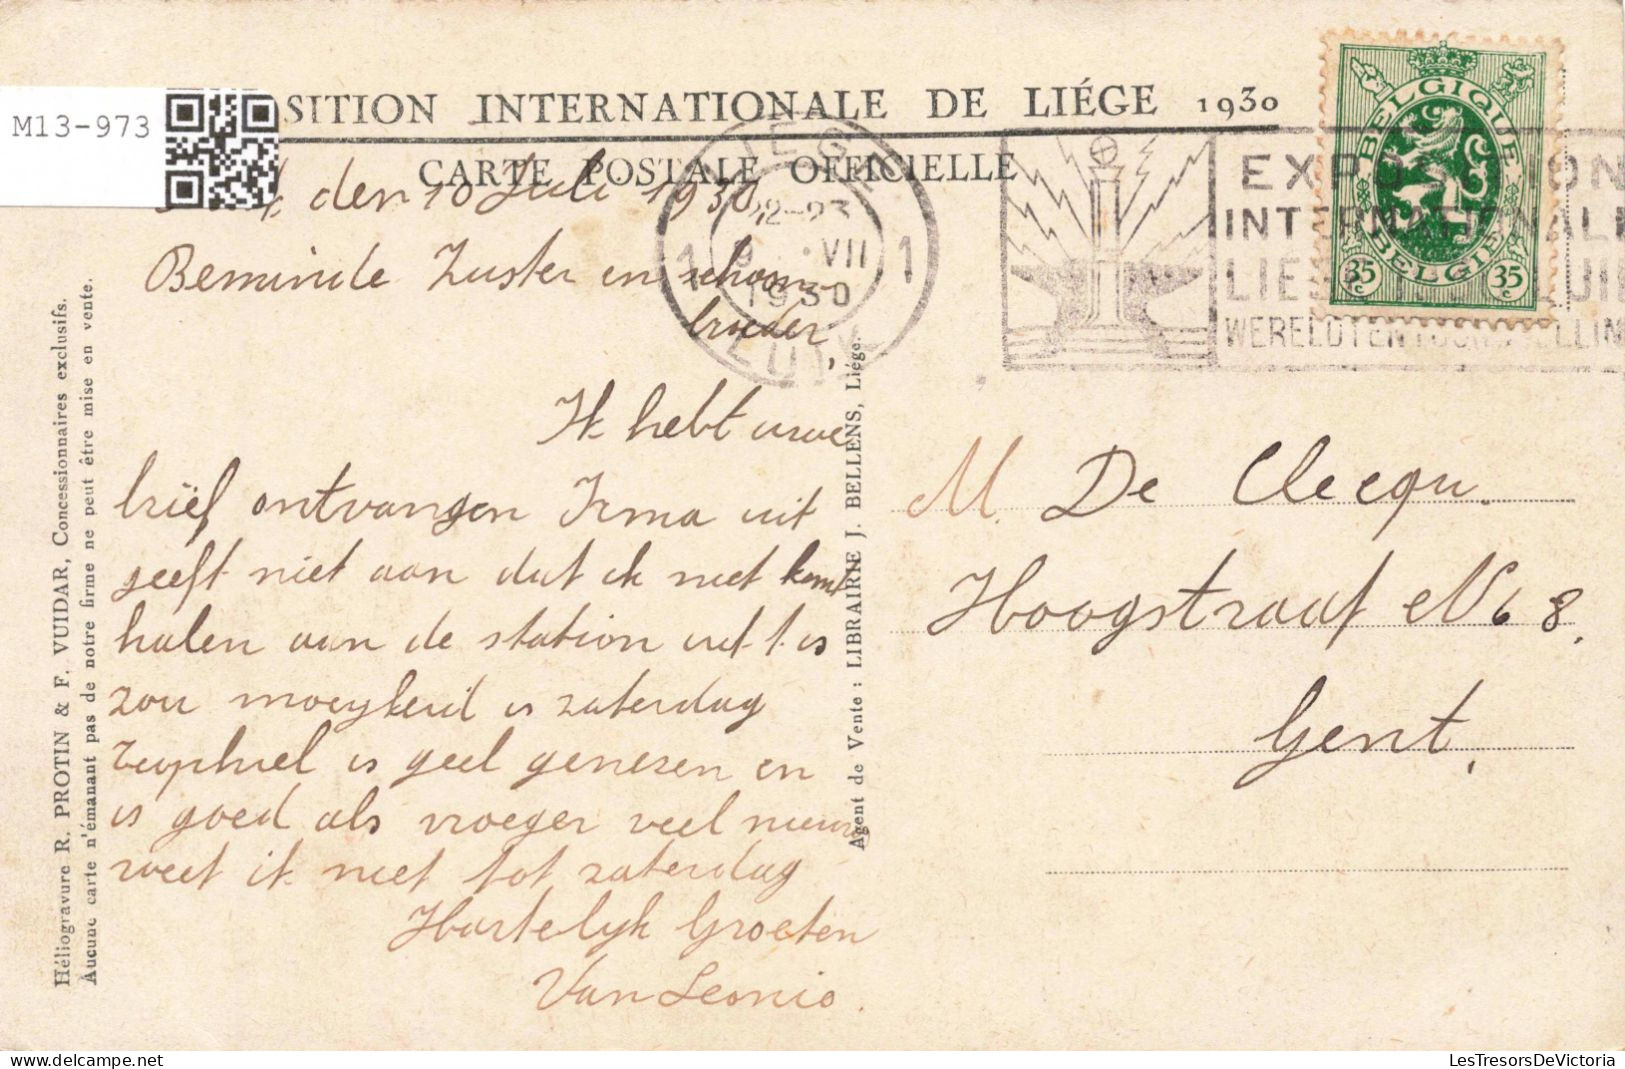 M13-973
SITION INTERNATIONALE DE LIÉGE 1930
CARTE POSTALE OFFICIELLE
den 10 Juli 1930
Beminde Zuster en schoon-
broeder,
Ik hebt uwe
brief ontvangen Irma uit
geeft niet aan dat ik niet komt
halen aan de station want t is
zou moeykend is zaterdag
is geel genezen en
is goed als vroeger veel nieuw
weet ik niet tot zaterdag
Hartelyk Groeten
Van Leonie.
M. De Clecqu.
Hoogstraat No 68.
Gent.
BELGIQUE
BELGIE
35 c
35 c
LIEGE
1 22-23 1
9 VII
1930
LUIK
EXPOSITION
INTERNATIONALE
WERELDTENTOONSTELLIN
Héliogravure R. PROTIN & F. VUIDAR, Concessionnaires exclusifs.
Aucune carte n'émanant pas de notre firme ne peut être mise en vente.
Agent de Vente : LIBRAIRIE J. BELLENS, Liége.
LesTresorsDeVictoria